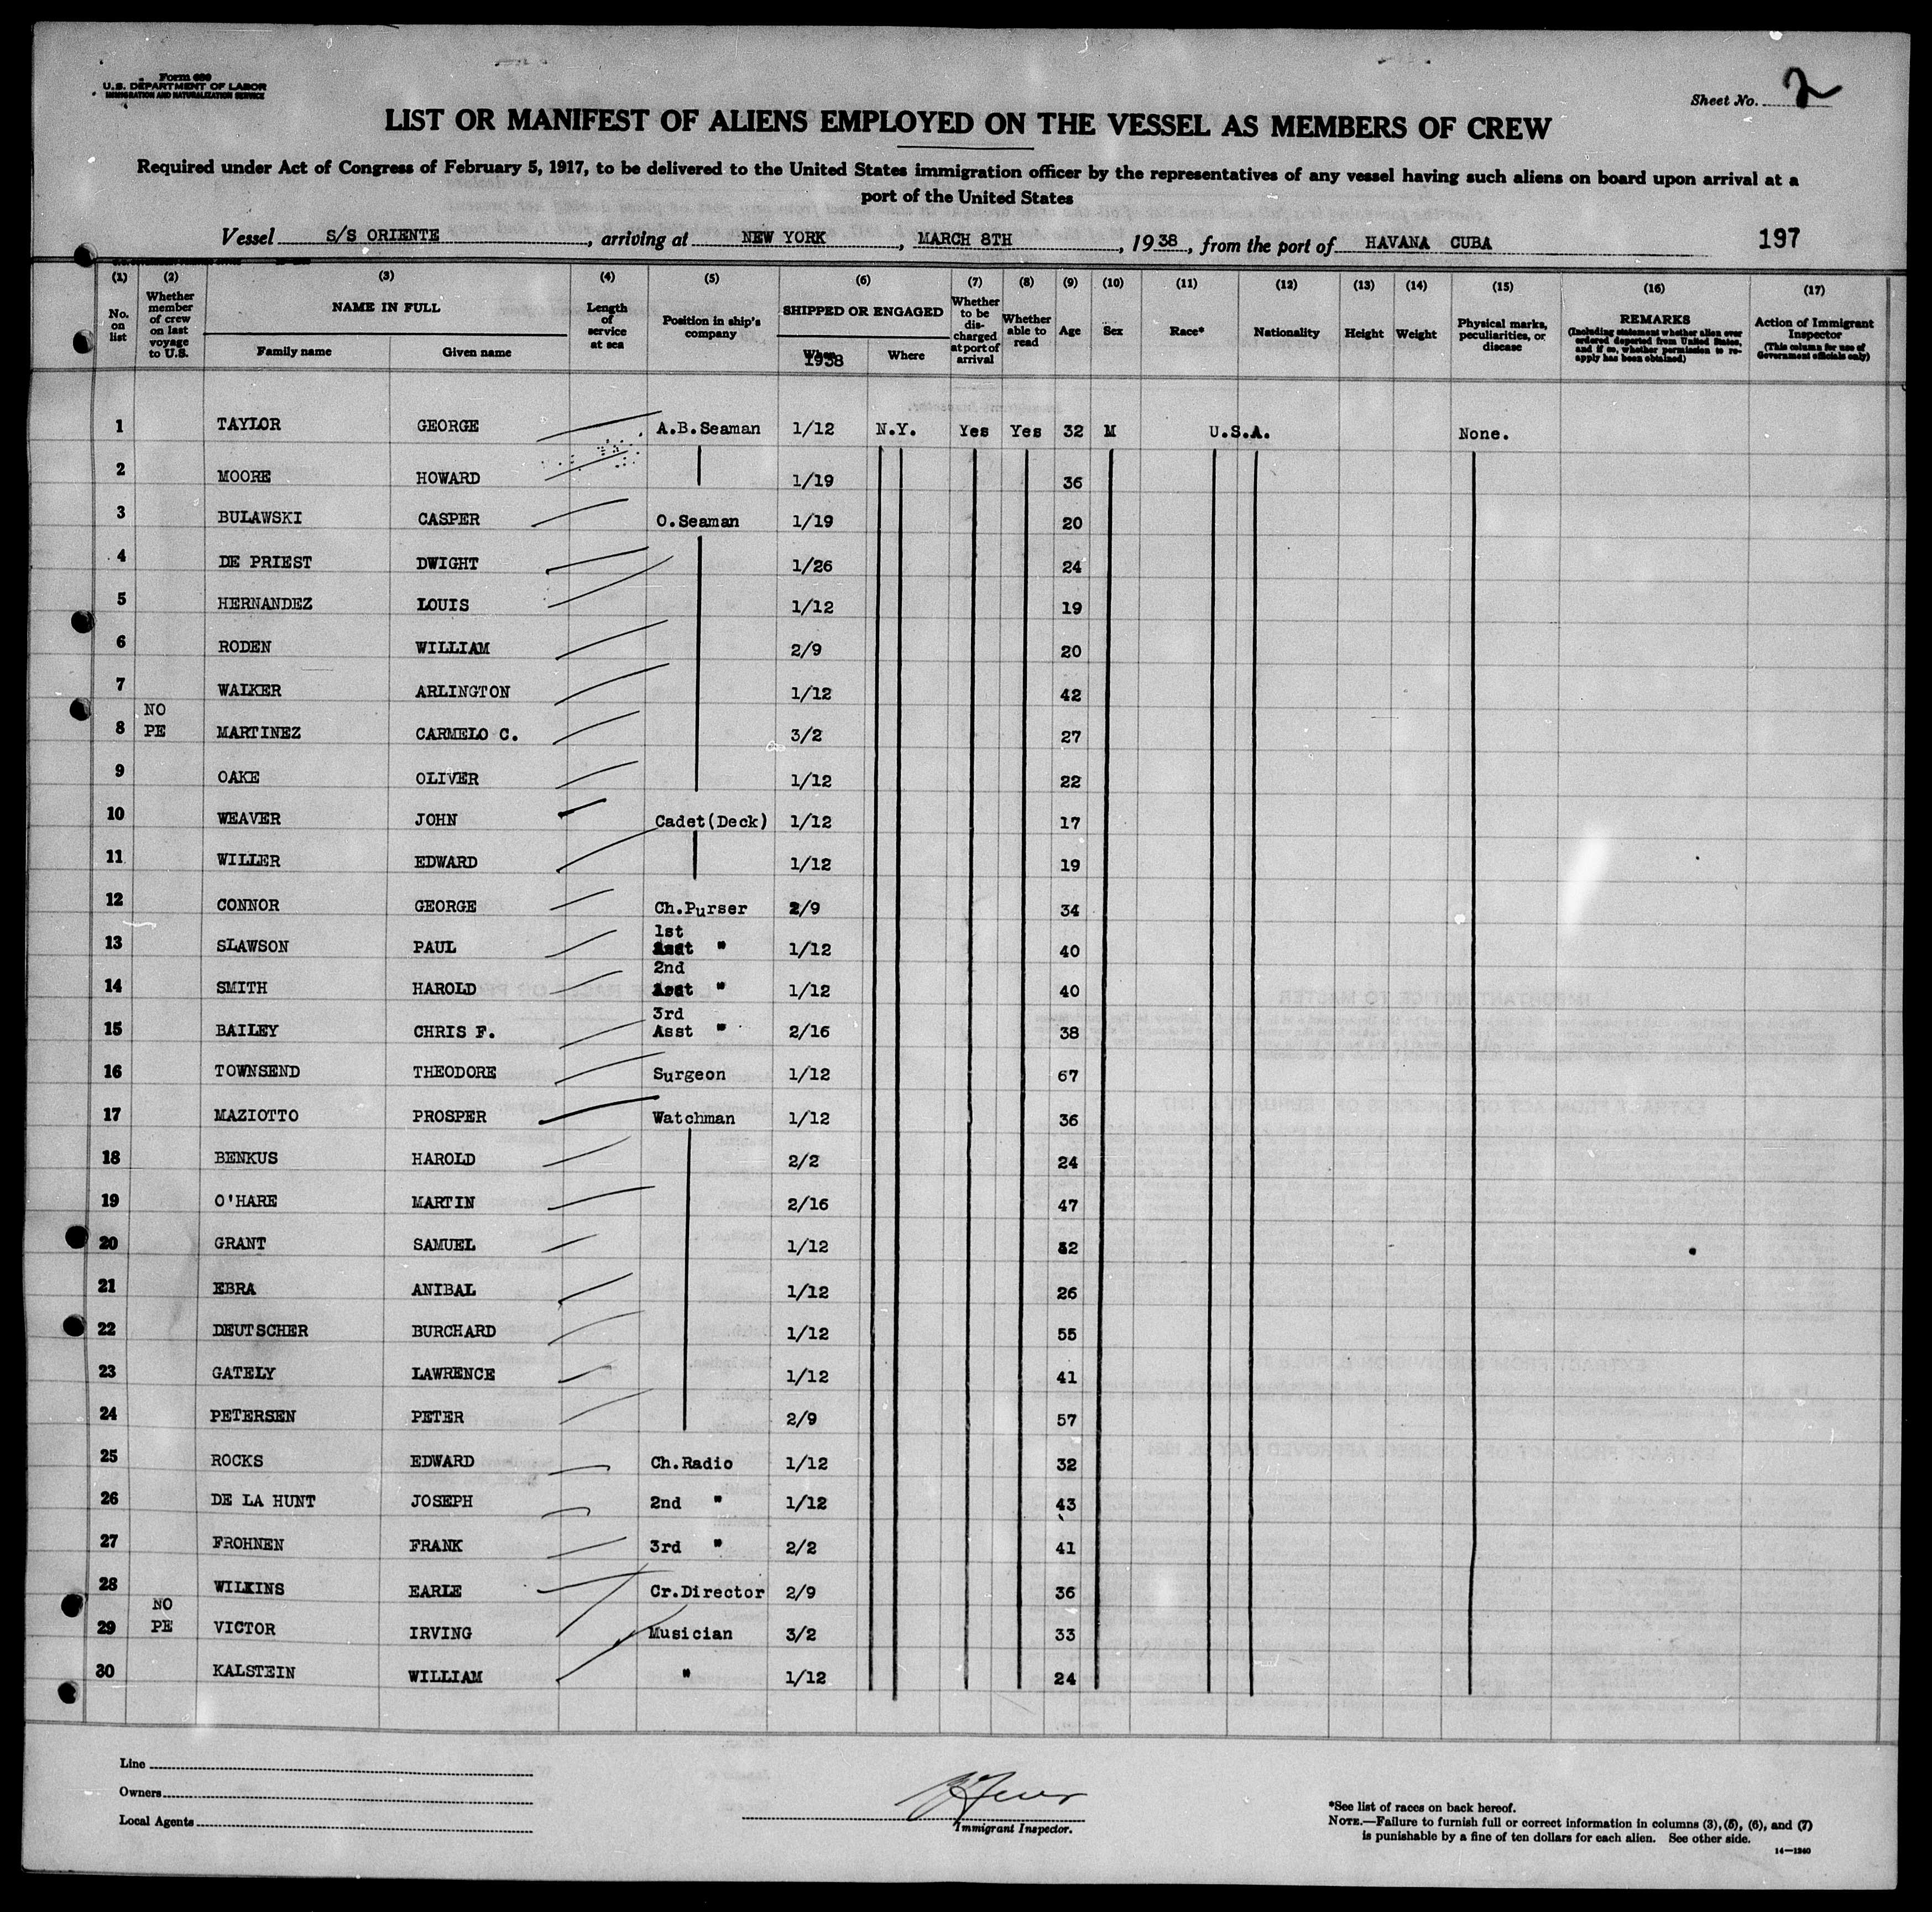 Form 689
U.S. DEPARTMENT OF LABOR
IMMIGRATION AND NATURALIZATION SERVICE
Sheet No. 2
LIST OR MANIFEST OF ALIENS EMPLOYED ON THE VESSEL AS MEMBERS OF CREW
Required under Act of Congress of February 5, 1917, to be delivered to the United States immigration officer by the representatives of any vessel having such aliens on board upon arrival at a
port of the United States
Vessel S/S ORIENTE, arriving at NEW YORK, MARCH 8TH, 1938, from the port of HAVANA CUBA 197
(1) (2) (3) (4) (5) (6) (7) (8) (9) (10) (11) (12) (13) (14) (15) (16) (17)
No. on list
Whether member of crew on last voyage to U.S.
NAME IN FULL
Family name Given name
Length of service at sea
Position in ship's company
SHIPPED OR ENGAGED
When Where
1938
Whether to be discharged at port of arrival
Whether able to read
Age
Sex
Race*
Nationality
Height
Weight
Physical marks, peculiarities, or disease
REMARKS
(Including statement whether alien ever ordered deported from United States, and if so, whether permission to reapply has been obtained)
Action of Immigrant Inspector
(This column for use of Government officials only)
1 TAYLOR GEORGE A.B.Seaman 1/12 N.Y. Yes Yes 32 M U.S.A. None.
2 MOORE HOWARD 1/19 36
3 BULAWSKI CASPER O.Seaman 1/19 20
4 DE PRIEST DWIGHT 1/26 24
5 HERNANDEZ LOUIS 1/12 19
6 RODEN WILLIAM 2/9 20
7 WALKER ARLINGTON 1/12 42
NO
8 PE MARTINEZ CARMELO C. 3/2 27
9 OAKE OLIVER 1/12 22
10 WEAVER JOHN Cadet(Deck) 1/12 17
11 WILLER EDWARD 1/12 19
12 CONNOR GEORGE Ch.Purser 2/9 34
1st
13 SLAWSON PAUL Asst " 1/12 40
2nd
14 SMITH HAROLD Asst " 1/12 40
3rd
15 BAILEY CHRIS F. Asst " 2/16 38
16 TOWNSEND THEODORE Surgeon 1/12 67
17 MAZIOTTO PROSPER Watchman 1/12 36
18 BENKUS HAROLD 2/2 24
19 O'HARE MARTIN 2/16 47
20 GRANT SAMUEL 1/12
21 EBRA ANIBAL 1/12 26
22 DEUTSCHER BURCHARD 1/12 55
23 GATELY LAWRENCE 1/12 41
24 PETERSEN PETER 2/9 57
25 ROCKS EDWARD Ch.Radio 1/12 32
26 DE LA HUNT JOSEPH 2nd " 1/12 43
27 FROHNEN FRANK 3rd " 2/2 41
28 WILKINS EARLE Cr.Director 2/9 36
NO
29 PE VICTOR IRVING Musician 3/2 33
30 KALSTEIN WILLIAM " 1/12 24
Line
Owners
Local Agents
Immigrant Inspector.
*See list of races on back hereof.
NOTE.—Failure to furnish full or correct information in columns (3), (5), (6), and (7)
is punishable by a fine of ten dollars for each alien. See other side.
14—1240